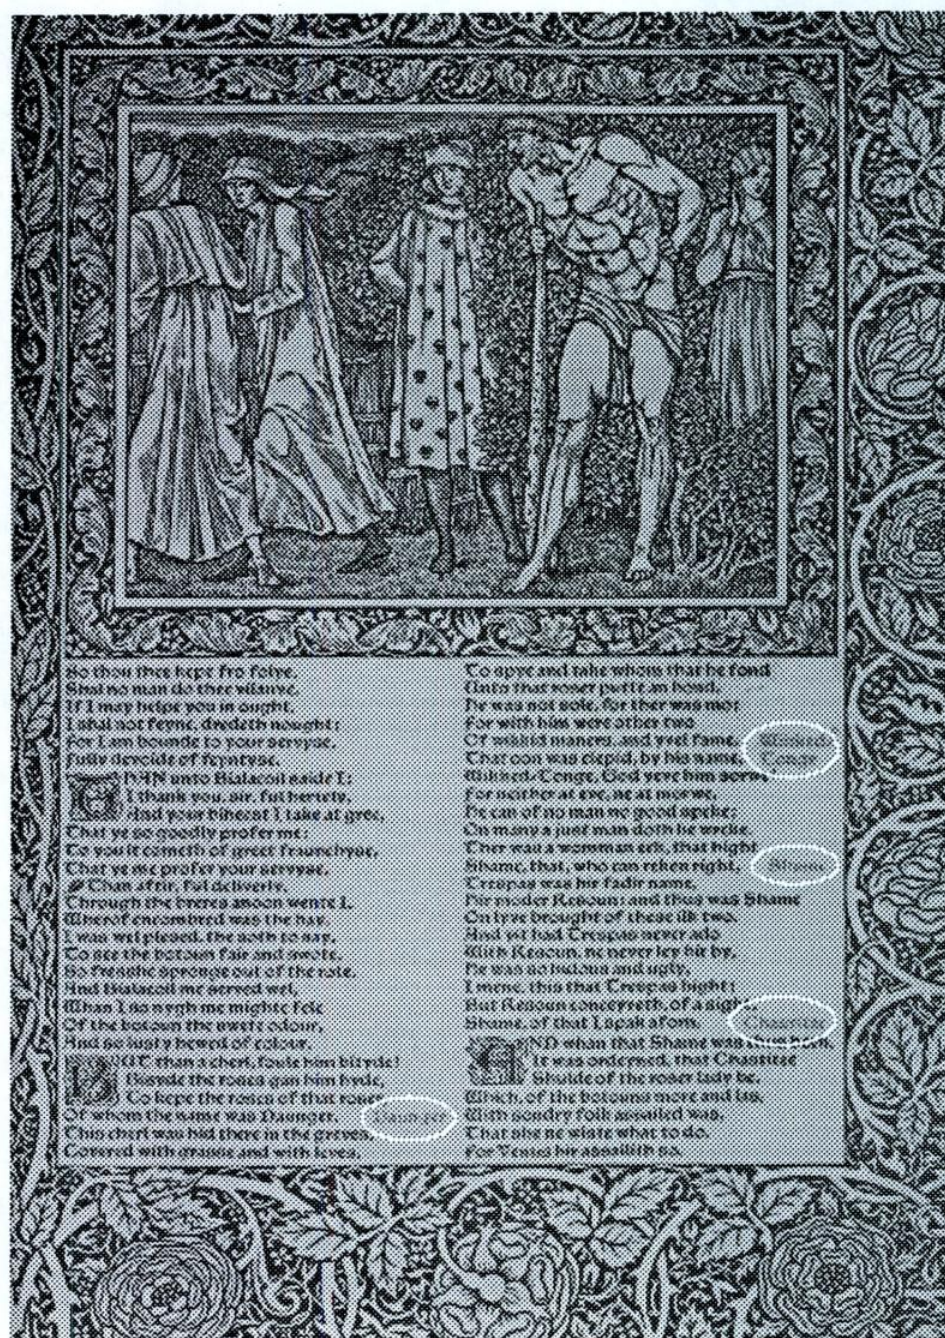 So thou thee kepe fro folye,
Shal no man do thee vilanye.
If I may helpe you in ought,
I shal not feyne, dredeth nought;
For I am bounde to your servyse,
Fully devoide of feyntyse.
THAN unto Bialacoil saide I:
I thank you, sir, ful hertely,
And your biheest I take at gree,
That ye so goodly profer me;
To you it cometh of greet fraunchyse,
That ye me profer your servyse.
Than aftir, ful deliverly,
Through the breres anoon wente I,
Wherof encombred was the hay.
I was wel plesed, the soth to say,
To see the botoun fair and swote,
So fresshe spronge out of the rote.
And Bialacoil me served wel,
Whan I so nygh me mighte fele
Of the botoun the swete odour,
And so lusty hewed of colour.
BUT than a cherl, foule him bityde!
Bisyde the roses gan him hyde,
To kepe the roses of that roser,
Of whom the name was Daunger. Daunger
This cherl was hid there in the greves,
Covered with grasse and with leves,
To spye and take whom that he fond
Unto that roser putte an hond.
He was not sole, for ther was mo;
For with him were other two
Of wikkid maners, and yvel fame. Wikked-
That oon was clepid, by his name, Tonge
Wikked-Tonge, God yeve him sorwe!
For neither at eve, ne at morwe,
He can of no man no good speke;
On many a just man doth he wreke.
Ther was a womman eek, that hight
Shame, that, who can reken right, Shame
Trespas was hir fadir name,
Hir moder Resoun; and thus was Shame
On lyve brought of these ilk two.
And yit had Trespas never ado
With Resoun, ne never ley hir by,
He was so hidous and ugly,
I mene, this that Trespas hight;
But Resoun conceyveth, of a sight,
Shame, of that I spak aforn. Chastitee
AND whan that Shame was thus born,
It was ordeyned, that Chastitee
Shulde of the roser lady be,
Which, of the botouns more and las,
With sondry folk assailed was,
That she ne wiste what to do.
For Venus hir assailith so,